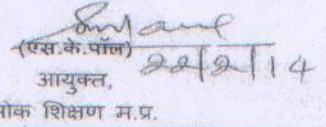 (एस.के.पॉल)
22/2/14
आयुक्त,
लोक शिक्षण म.प्र.